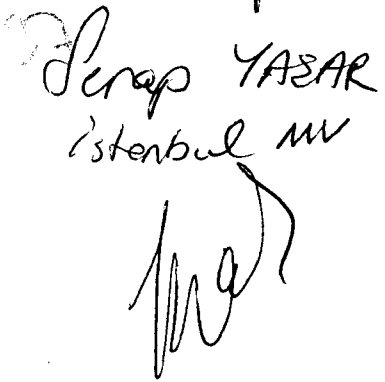 Serap YAŞAR
istanbul MV